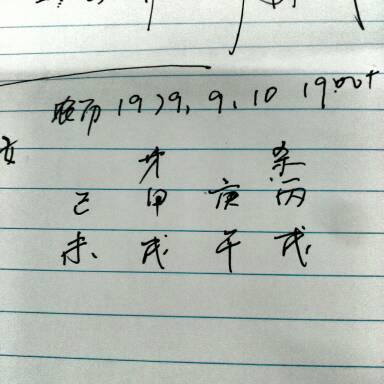 农历 1979. 9. 10 19:00+
才 杀
己 甲 庚 丙
未 戌 午 戌